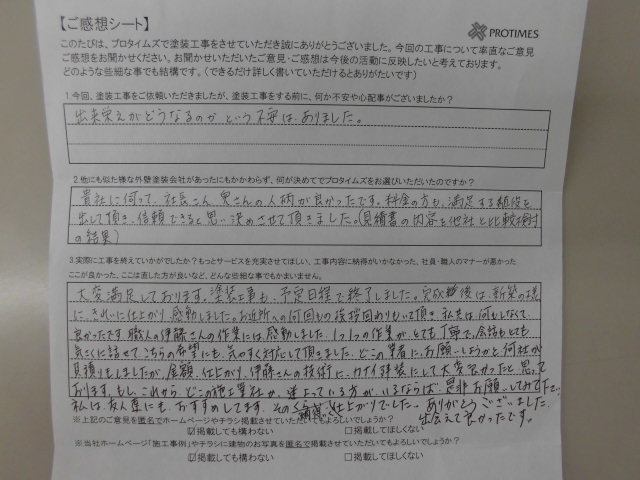 【ご感想シート】
PROTIMES
このたびは、プロタイムズで塗装工事をさせていただき誠にありがとうございました。今回の工事について率直なご意見
ご感想をお聞かせください。お聞かせいただいたご意見・ご感想は今後の活動に反映したいと考えております。
どのような些細な事でも結構です。（できるだけ詳しく書いていただけるとありがたいです）
1.今回、塗装工事をご依頼いただきましたが、塗装工事をする前に、何か不安や心配事がございましたか？
出来栄えがどうなるのか という不安は、ありました。
2.他にも似た様な外壁塗装会社があったにもかかわらず、何が決めてでプロタイムズをお選びいただいたのですか？
貴社に伺って、社長さん、奥さんの人柄が良かったです。料金の方も、満足する値段を
出して頂き、信頼できると思い決めさせて頂きました。(見積書の内容を他社と比較検討
の結果)
3.実際に工事を終えていかがでしたか？もっとサービスを充実させてほしい、工事内容に納得がいかなかった、社員・職人のマナーが悪かった
ここが良かった、ここは直した方が良いなど、どんな些細な事でもかまいません。
大変満足しております。塗装工事も、予定日程で終了しました。完成後は、新築の様
に、きれいに仕上がり、感動しました。お近所への何回もの挨拶回りもして頂き、私共は何もしなくて
良かったです。職人の伊藤さんの作業には、感動しました。1つ1つの作業が、とても丁寧で、会話もとても
気さくに話せて、こちらの希望にも、気やすく対応して頂きました。どこの業者に、お願いしようかと何社か
見積りもしましたが、金額、仕上がり、伊藤さんの技術に、カナイ塗装にして大変良かったと思って
おります。もし、これから、どこの施工業社か、迷っている方がいるならば、是非お願いしてみて下さい。
私は、友人達にも、おすすめしてます。そのくらい
仕上がりでした。ありがとうございました。
出会えて良かったです。
※上記のご意見を匿名でホームページやチラシに掲載させていただいてもよろしいでしょうか？
☑掲載しても構わない　□掲載してほしくない
※当社ホームページ「施工事例」やチラシに建物のお写真を匿名で掲載させていただいてもよろしいでしょうか？
☑掲載しても構わない　□掲載してほしくない